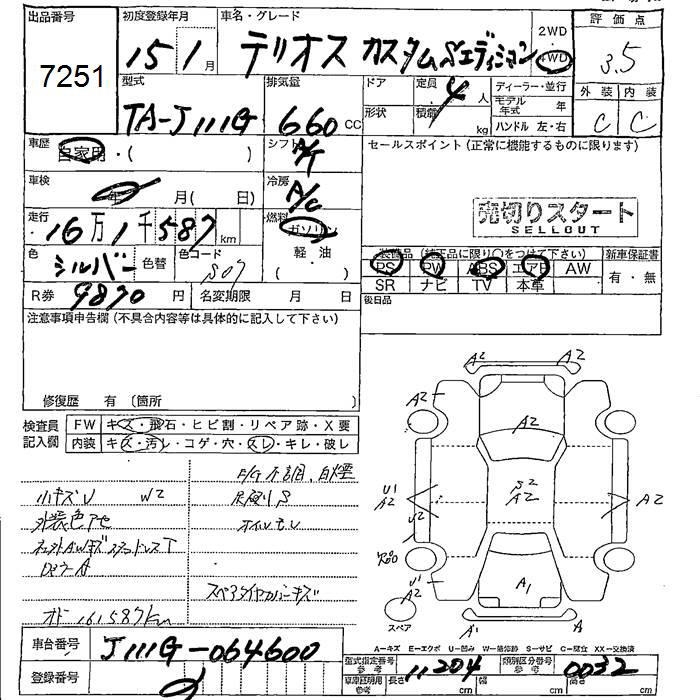 出品番号 初度登録年月 車名・グレード 評価点
7251 15 1月 テリオス カスタムSエディション 2WD 4WD 3.5
型式 排気量 ドア 定員 4人 ディーラー・並行 外装 内装
TA-J111G 660 CC 形状 積載 kg モデル年式 年 C C
ハンドル 左・右
車歴 自家用・( ) シフト A/T セールスポイント(正常に機能するものに限ります)
車検 年 月( 日) 冷房 A/C
売切りスタート
SELLOUT
走行 16万1千587km 燃料 ガソリン
軽油
( )
色 シルバー 色替 色コード S07
装備品(純正品に限り○をつけて下さい) 新車保証書
PS PW ABS エアB AW 有・無
SR ナビ TV 本革
R券 9870円 名変期限 月 日 後日品
注意事項申告欄(不具合内容等は具体的に記入して下さい)
修復歴 有 〔箇所 〕
検査員記入欄 FW キズ・飛石・ヒビ割・リペア跡・X要
内装 キズ・汚レ・コゲ・穴・スレ・キレ・破レ
E/G不調、白煙
小キズU W2
外装色アセ オイルモレ
スペアタイヤカバーキズ
オドー161587km
A2 A2
A2 A2
U1 A2 S2 A2 A2
U2
U1 A1
A2
スペア A1 A
A-キズ E-エクボ U-凹み W-補修跡 S-サビ C-腐食 XX-交換済
車台番号 J111G-064600
型式指定番号 参考 11204 類別区分番号 参考 0032
登録番号
車庫証明用 参考 長さ cm 幅 cm 高さ cm